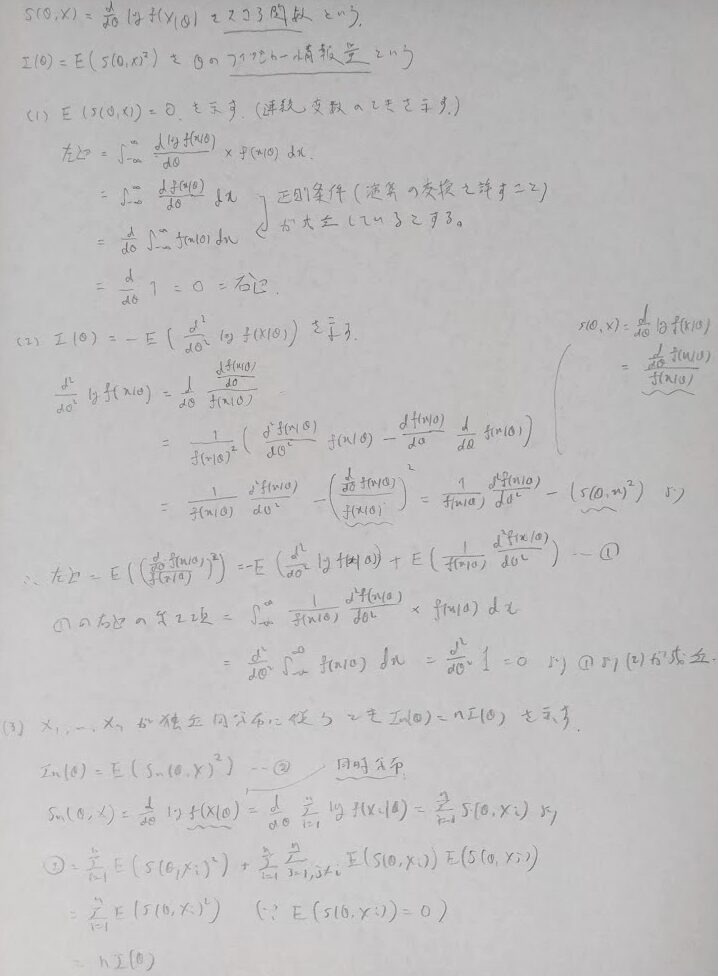 S(θ,X) = d/dθ log f(X|θ) をスコア関数という.
I(θ) = E(S(θ,X)²) を θのフィッシャー情報量という
(1) E(S(θ,X)) = 0. を示す. (連続変数のときを示す.)
左辺 = ∫_{-∞}^{∞} d log f(x|θ)/dθ × f(x|θ) dx.
= ∫_{-∞}^{∞} d f(x|θ)/dθ dx 正則条件(演算の交換を許すこと)
= d/dθ ∫_{-∞}^{∞} f(x|θ) dx が成立しているとする。
= d/dθ 1 = 0 = 右辺.
(2) I(θ) = -E( d²/dθ² log f(X|θ) ) を示す.
S(θ,X) = d/dθ log f(X|θ)
= (d/dθ f(x|θ))/f(x|θ)
d²/dθ² log f(x|θ) = d/dθ (d f(x|θ)/dθ)/f(x|θ)
= 1/f(x|θ)² ( d²f(x|θ)/dθ² f(x|θ) - d f(x|θ)/dθ d/dθ f(x|θ) )
= 1/f(x|θ) d²f(x|θ)/dθ² - ( (d/dθ f(x|θ))/f(x|θ) )² = 1/f(x|θ) d²f(x|θ)/dθ² - (S(θ,x)²) より
∴ 左辺 = E( ( (d/dθ f(x|θ))/f(x|θ) )² ) = -E( d²/dθ² log f(x|θ) ) + E( 1/f(x|θ) d²f(x|θ)/dθ² ) … ①
①の右辺の第2項 = ∫_{-∞}^{∞} 1/f(x|θ) d²f(x|θ)/dθ² × f(x|θ) dx
= d²/dθ² ∫_{-∞}^{∞} f(x|θ) dx = d²/dθ² 1 = 0 より ①より(2)が成立.
(3) X₁, …, Xn が独立同分布に従うとき In(θ) = nI(θ) を示す.
In(θ) = E(Sn(θ,X)²) … ② 同時分布
Sn(θ,X) = d/dθ log f(X|θ) = d/dθ Σ_{i=1}^{n} log f(Xi|θ) = Σ_{i=1}^{n} S(θ,Xi) より
② = Σ_{i=1}^{n} E(S(θ,Xi)²) + Σ_{i=1}^{n} Σ_{j=1,j≠i}^{n} E(S(θ,Xi)) E(S(θ,Xj))
= Σ_{i=1}^{n} E(S(θ,Xi)²) (∵ E(S(θ,Xi)) = 0)
= nI(θ)